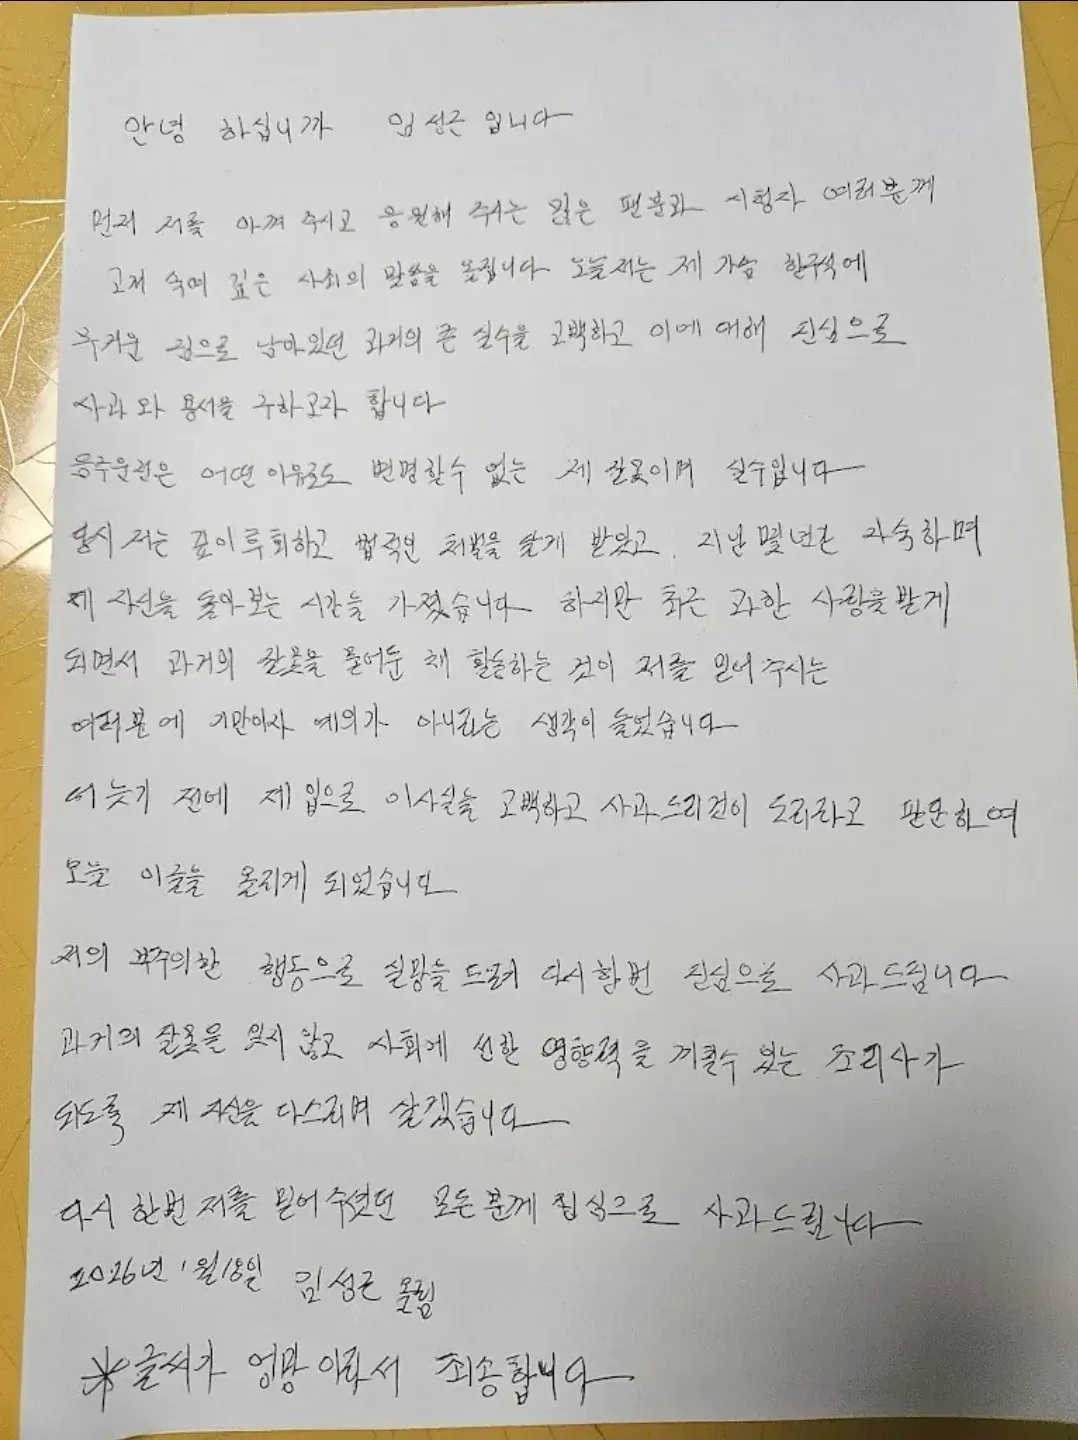 안녕 하십니까 임성근 입니다
먼저 저를 아껴 주시고 응원해 주시는 많은 팬분과 시청자 여러분께
고개 숙여 깊은 사죄의 말씀을 올립니다 오늘저는 제 가슴 한구석에
무거운 짐으로 남아있던 과거의 큰 실수을 고백하고 이에 대해 진심으로
사과 와 용서을 구하고자 합니다
음주운전은 어떤 이유로도 변명할수 없는 제 잘못이며 실수입니다
당시 저는 깊이후회하고 법적인 처벌을 달게 받았고, 지난 몇년간 자숙하며
제 자신을 돌아 보는 시간을 가졌습니다 하지만 최근 과한 사랑을받게
되면서 과거의 잘못을 묻어둔 채 활동하는 것이 저를 믿어 주시는
여러분에 기만이자 예의가 아니라는 생각이 들었습니다
더 늦기 전에 제 입으로 이사실을 고백하고 사과드리것이 도리라고 판단하여
오늘 이글을 올리게 되었습니다
저의 부주의한 행동으로 실망을 드려 다시한번 진심으로 사과드립니다
과거의 잘못을 잊지 않고 사회에 선한 영향력을 끼칠수 있는 조리사가
되도록 제 자신을 다스리며 살겠습니다
다시 한번 저를 믿어 주셨던 모든분께 진심으로 사과드립니다
2026년 1월18일 임성근 올림
※글씨가 엉망 이라서 죄송합니다